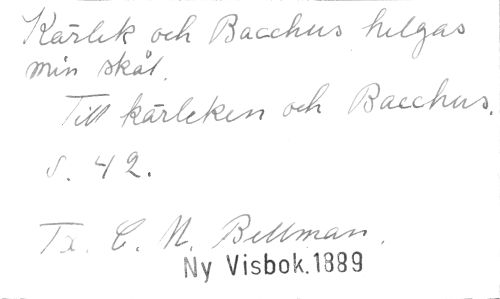 Kärlek och Bacchus helgas
min skål.
Till kärleken och Bacchus.
s. 42.
Tx. C. M. Bellman.
Ny Visbok.1889